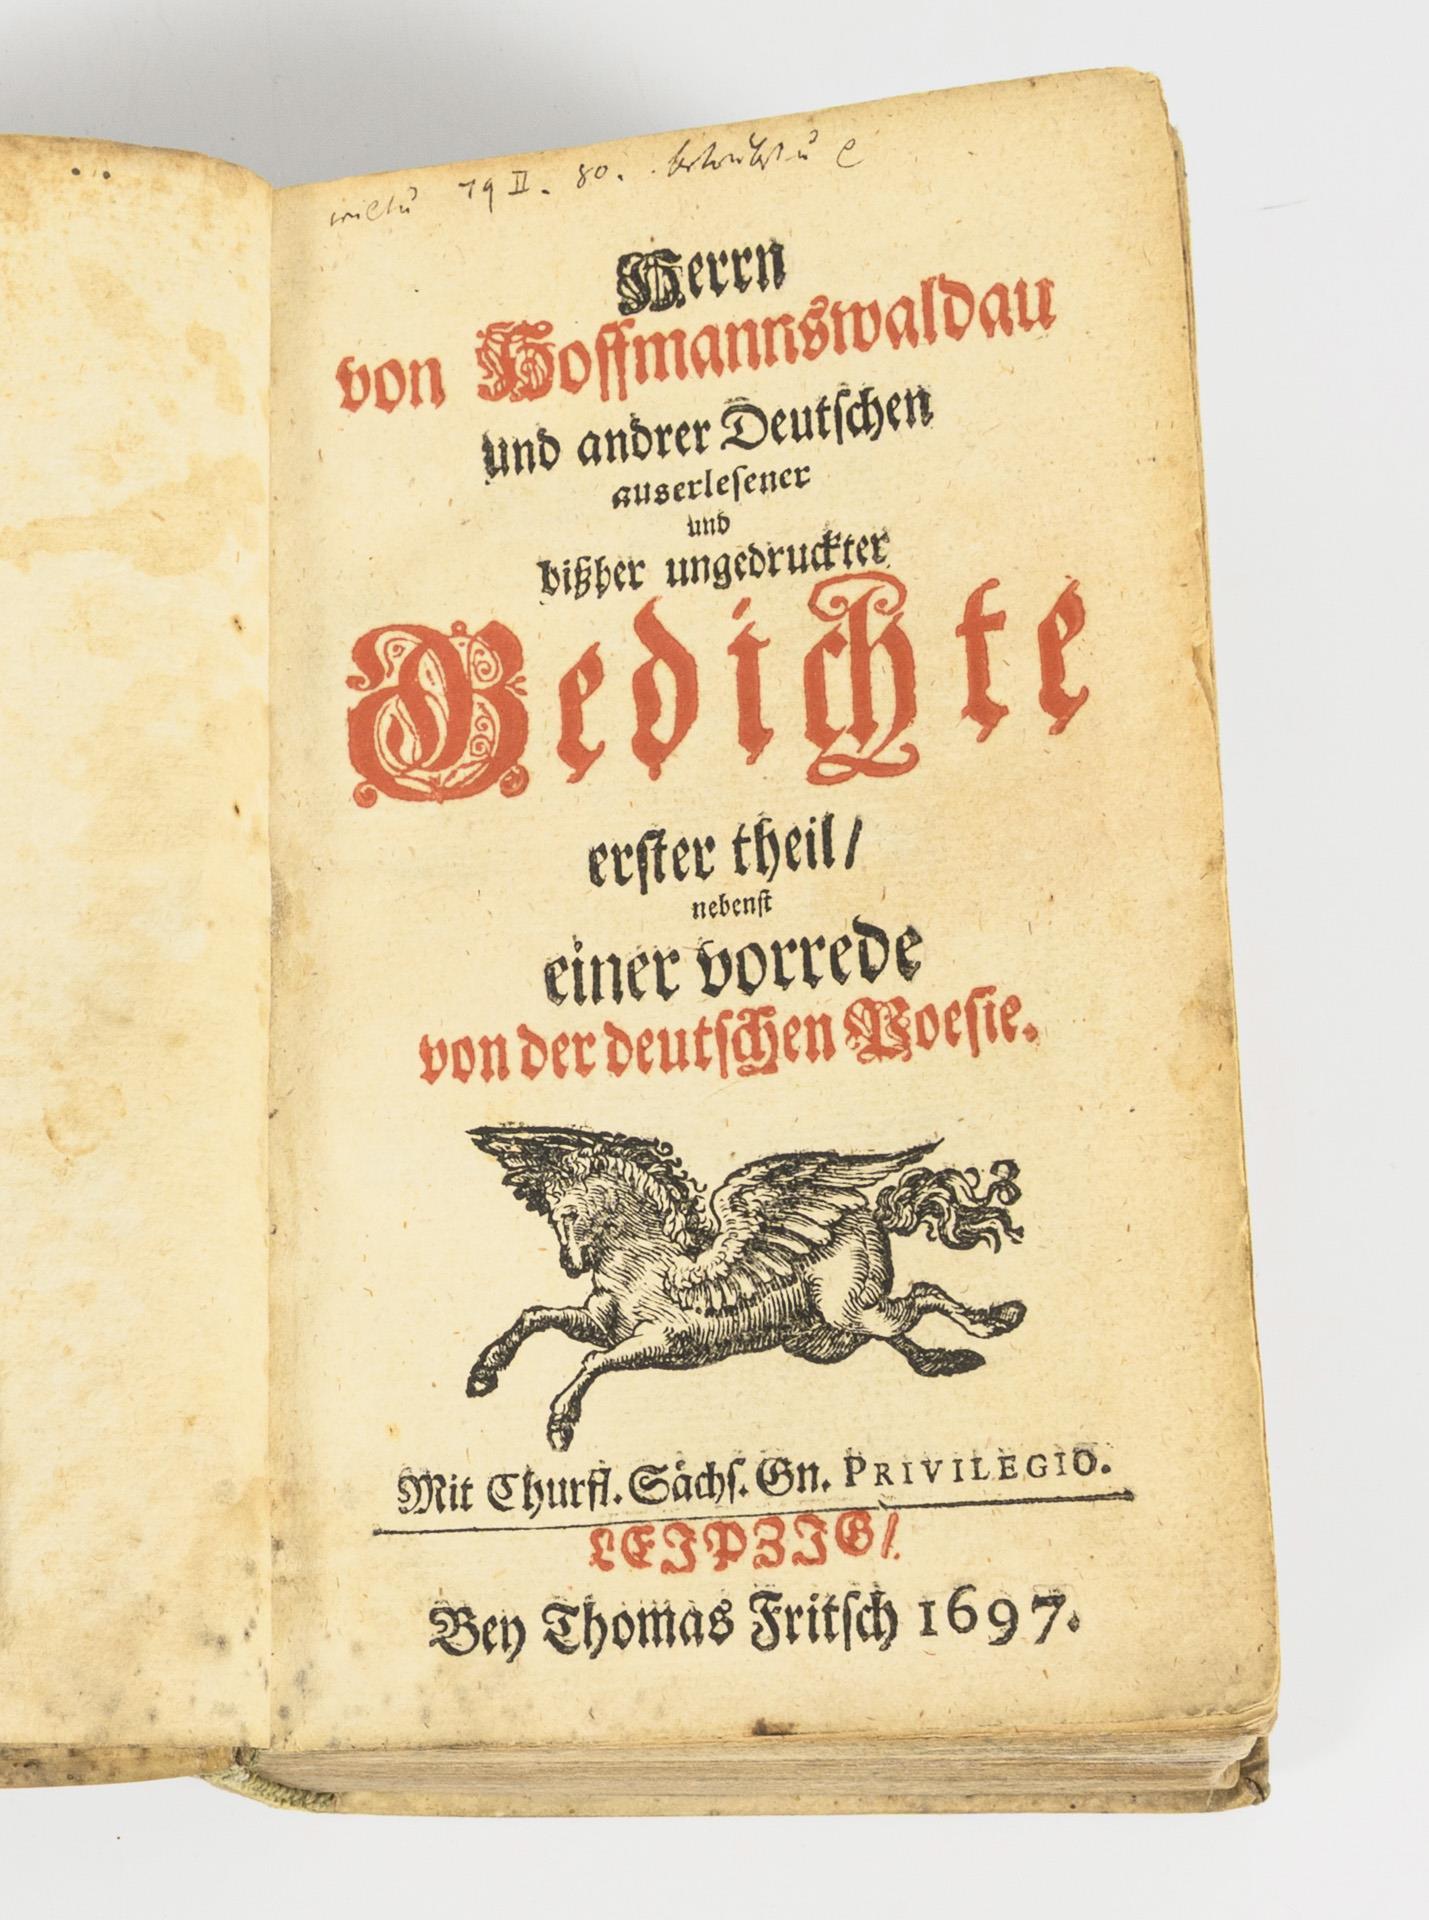 19 II. 80.
Herrn
von Hoffmannswaldau
und andrer Deutſchen
auserleſener
und
bißher ungedruckter
Gedichte
erſter theil/
nebenſt
einer vorrede
von der deutſchen Poeſie.
Mit Churfl. Sächſ. Gn. PRIVILEGIO.
LEIPZIG/
Bey Thomas Fritſch 1697.